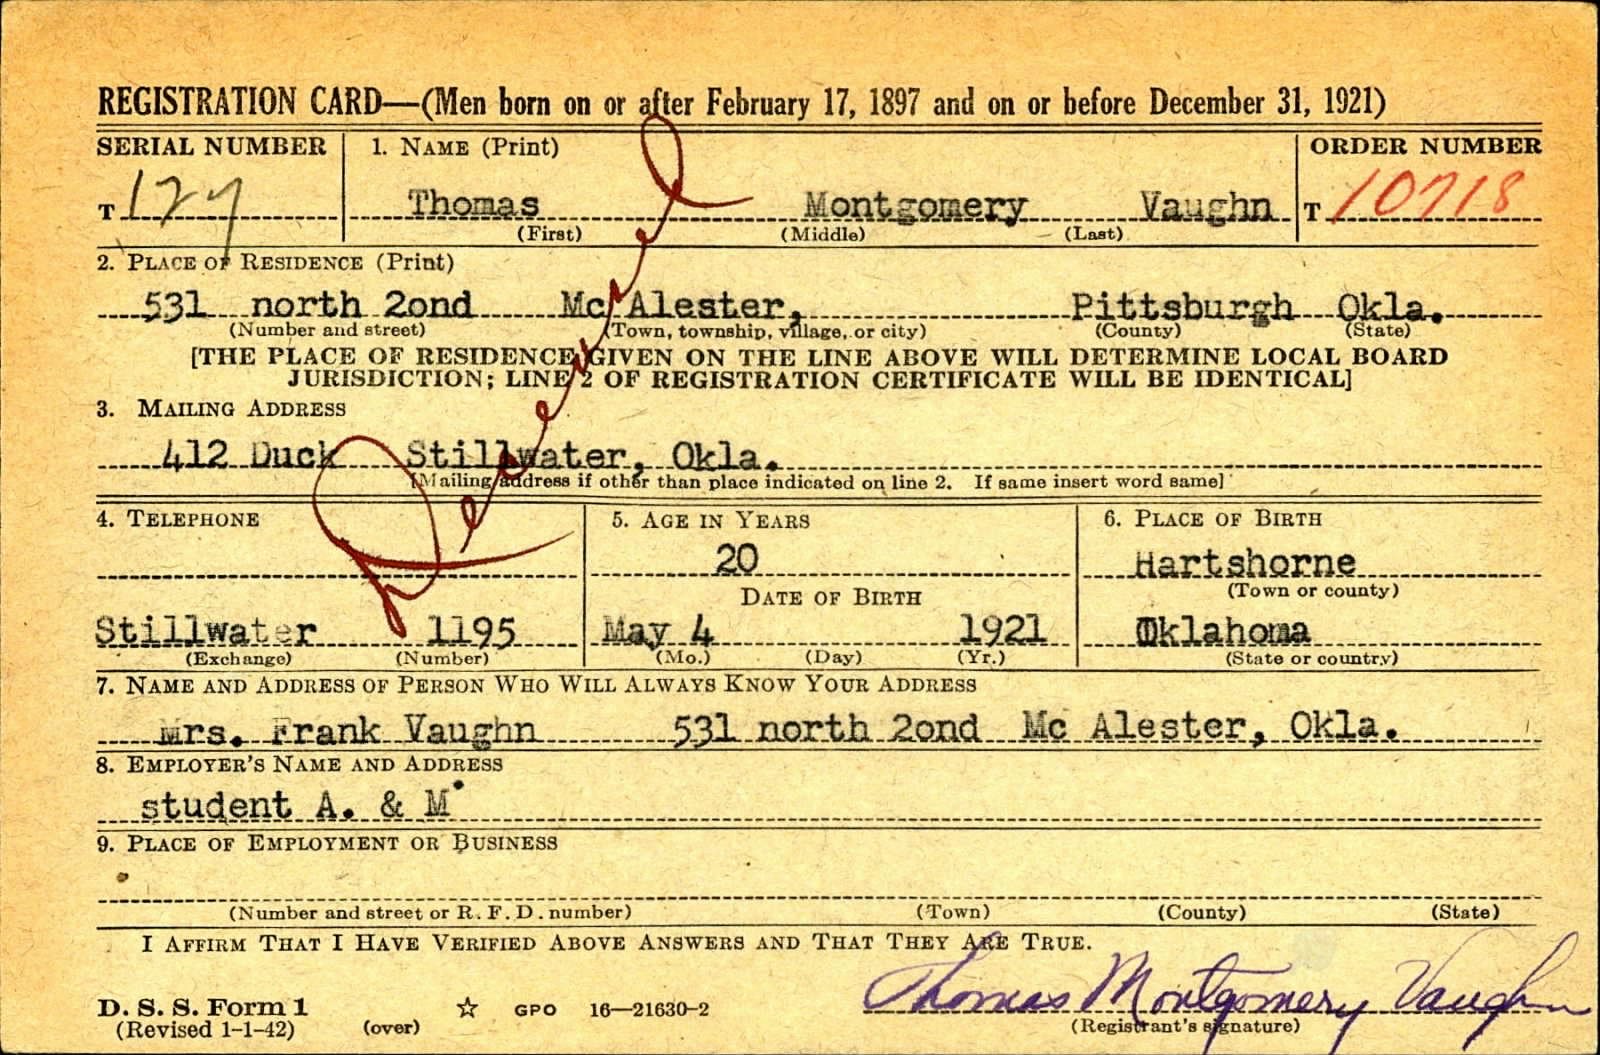 REGISTRATION CARD—(Men born on or after February 17, 1897 and on or before December 31, 1921)
SERIAL NUMBER 1. NAME (Print) ORDER NUMBER
T 127 Thomas Montgomery Vaughn T 10718
(First) (Middle) (Last)
2. PLACE OF RESIDENCE (Print)
531 north 2ond Mc Alester, Pittsburgh Okla.
(Number and street) (Town, township, village, or city) (County) (State)
[THE PLACE OF RESIDENCE GIVEN ON THE LINE ABOVE WILL DETERMINE LOCAL BOARD
JURISDICTION; LINE 2 OF REGISTRATION CERTIFICATE WILL BE IDENTICAL]
3. MAILING ADDRESS
412 Duck Stillwater, Okla.
[Mailing address if other than place indicated on line 2. If same insert word same]
4. TELEPHONE 5. AGE IN YEARS 6. PLACE OF BIRTH
20 Hartshorne
DATE OF BIRTH (Town or county)
Stillwater 1195 May 4 1921 Oklahoma
(Exchange) (Number) (Mo.) (Day) (Yr.) (State or country)
7. NAME AND ADDRESS OF PERSON WHO WILL ALWAYS KNOW YOUR ADDRESS
Mrs. Frank Vaughn 531 north 2ond Mc Alester, Okla.
8. EMPLOYER'S NAME AND ADDRESS
student A. & M.
9. PLACE OF EMPLOYMENT OR BUSINESS
(Number and street or R. F. D. number) (Town) (County) (State)
I AFFIRM THAT I HAVE VERIFIED ABOVE ANSWERS AND THAT THEY ARE TRUE.
Thomas Montgomery Vaughn
D. S. S. Form 1 ☆ GPO 16—21630-2
(Revised 1-1-42) (over) (Registrant's signature)